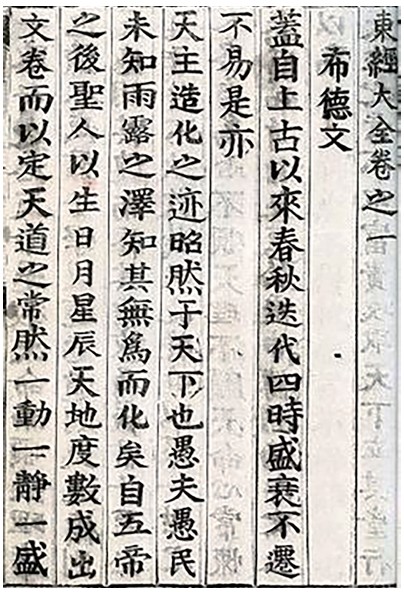 東經大全卷之一
布德文
蓋自上古以來春秋迭代四時盛衰不遷
不易是亦
天主造化之迹昭然于天下也愚夫愚民
未知雨露之澤知其無爲而化矣自五帝
之後聖人以生日月星辰天地度數成出
文卷而以定天道之常然一動一靜一盛